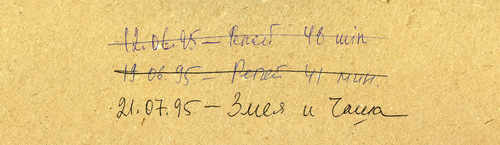 12.06.95 – Репей 48 min
19.06.95 – Репей 41 мин.
21.07.95 – Змея и Чаша